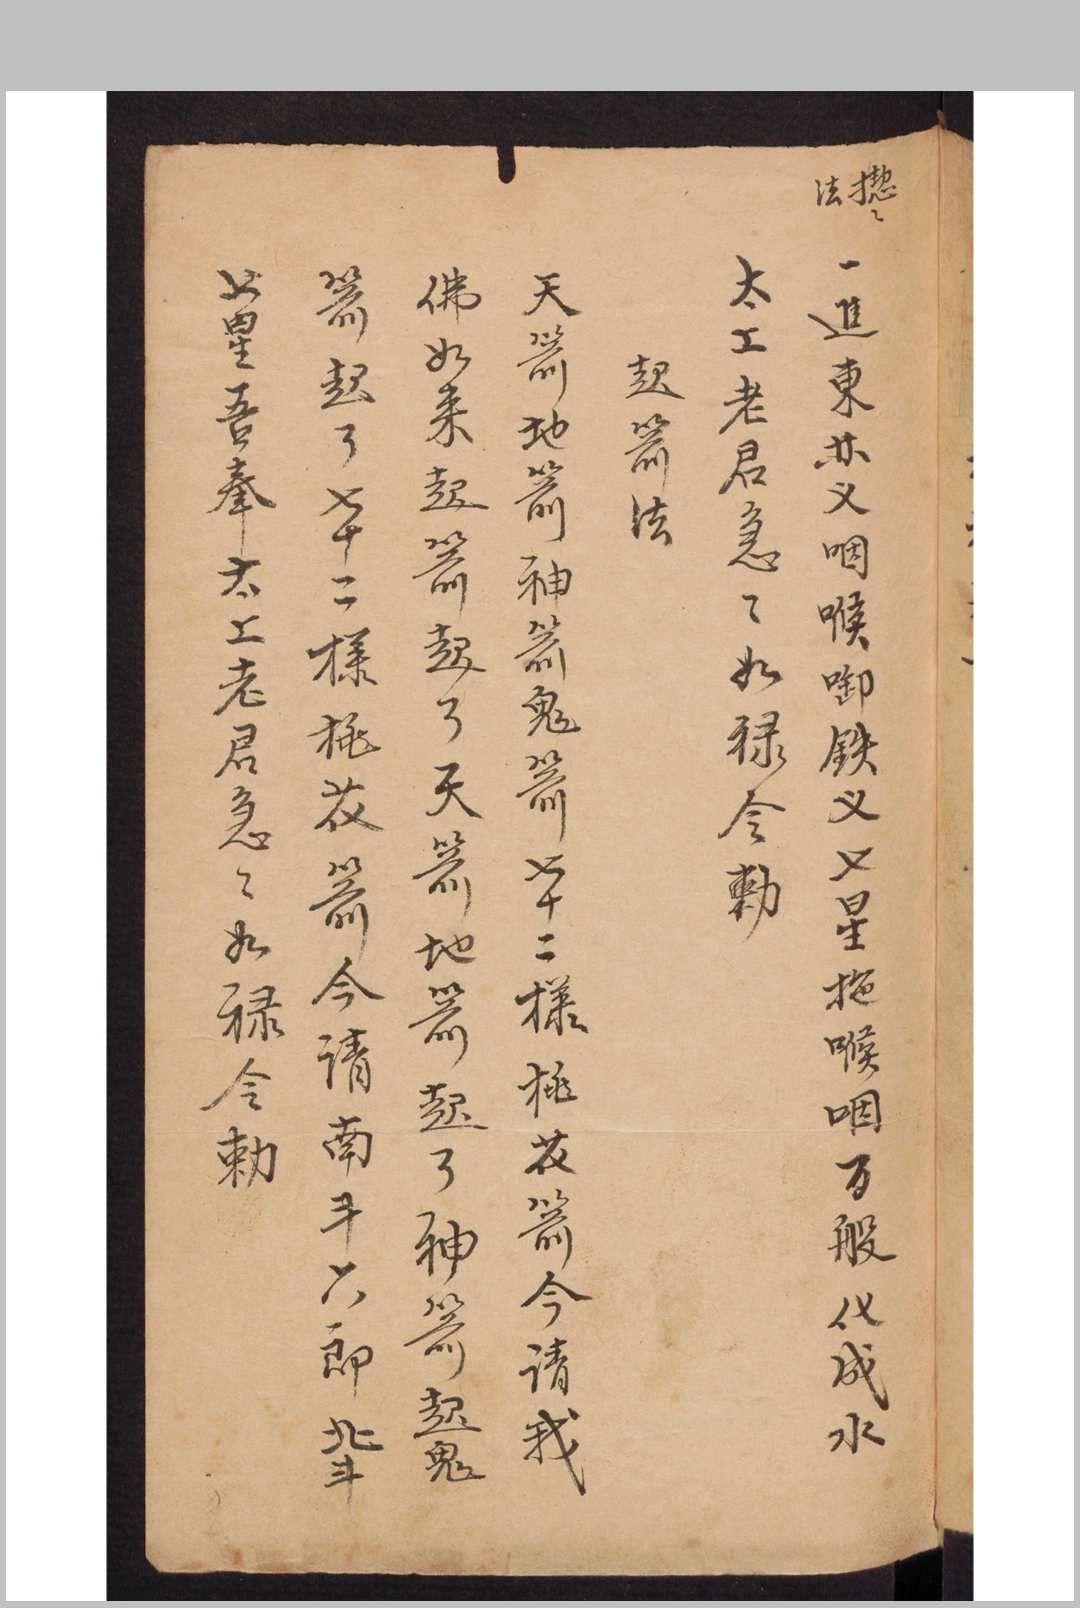 法
一進東 义咽喉啣鉄义七星拖喉咽万般化成水
太上老君急〻如禄令勅
起箭法
天箭地箭神箭鬼箭七十二様桃花箭今请我
佛如来起箭起了天箭地箭起了神箭起鬼
箭起了七十二様桃花箭今请南斗六郎北斗
七星吾奉太上老君急〻如禄令勅